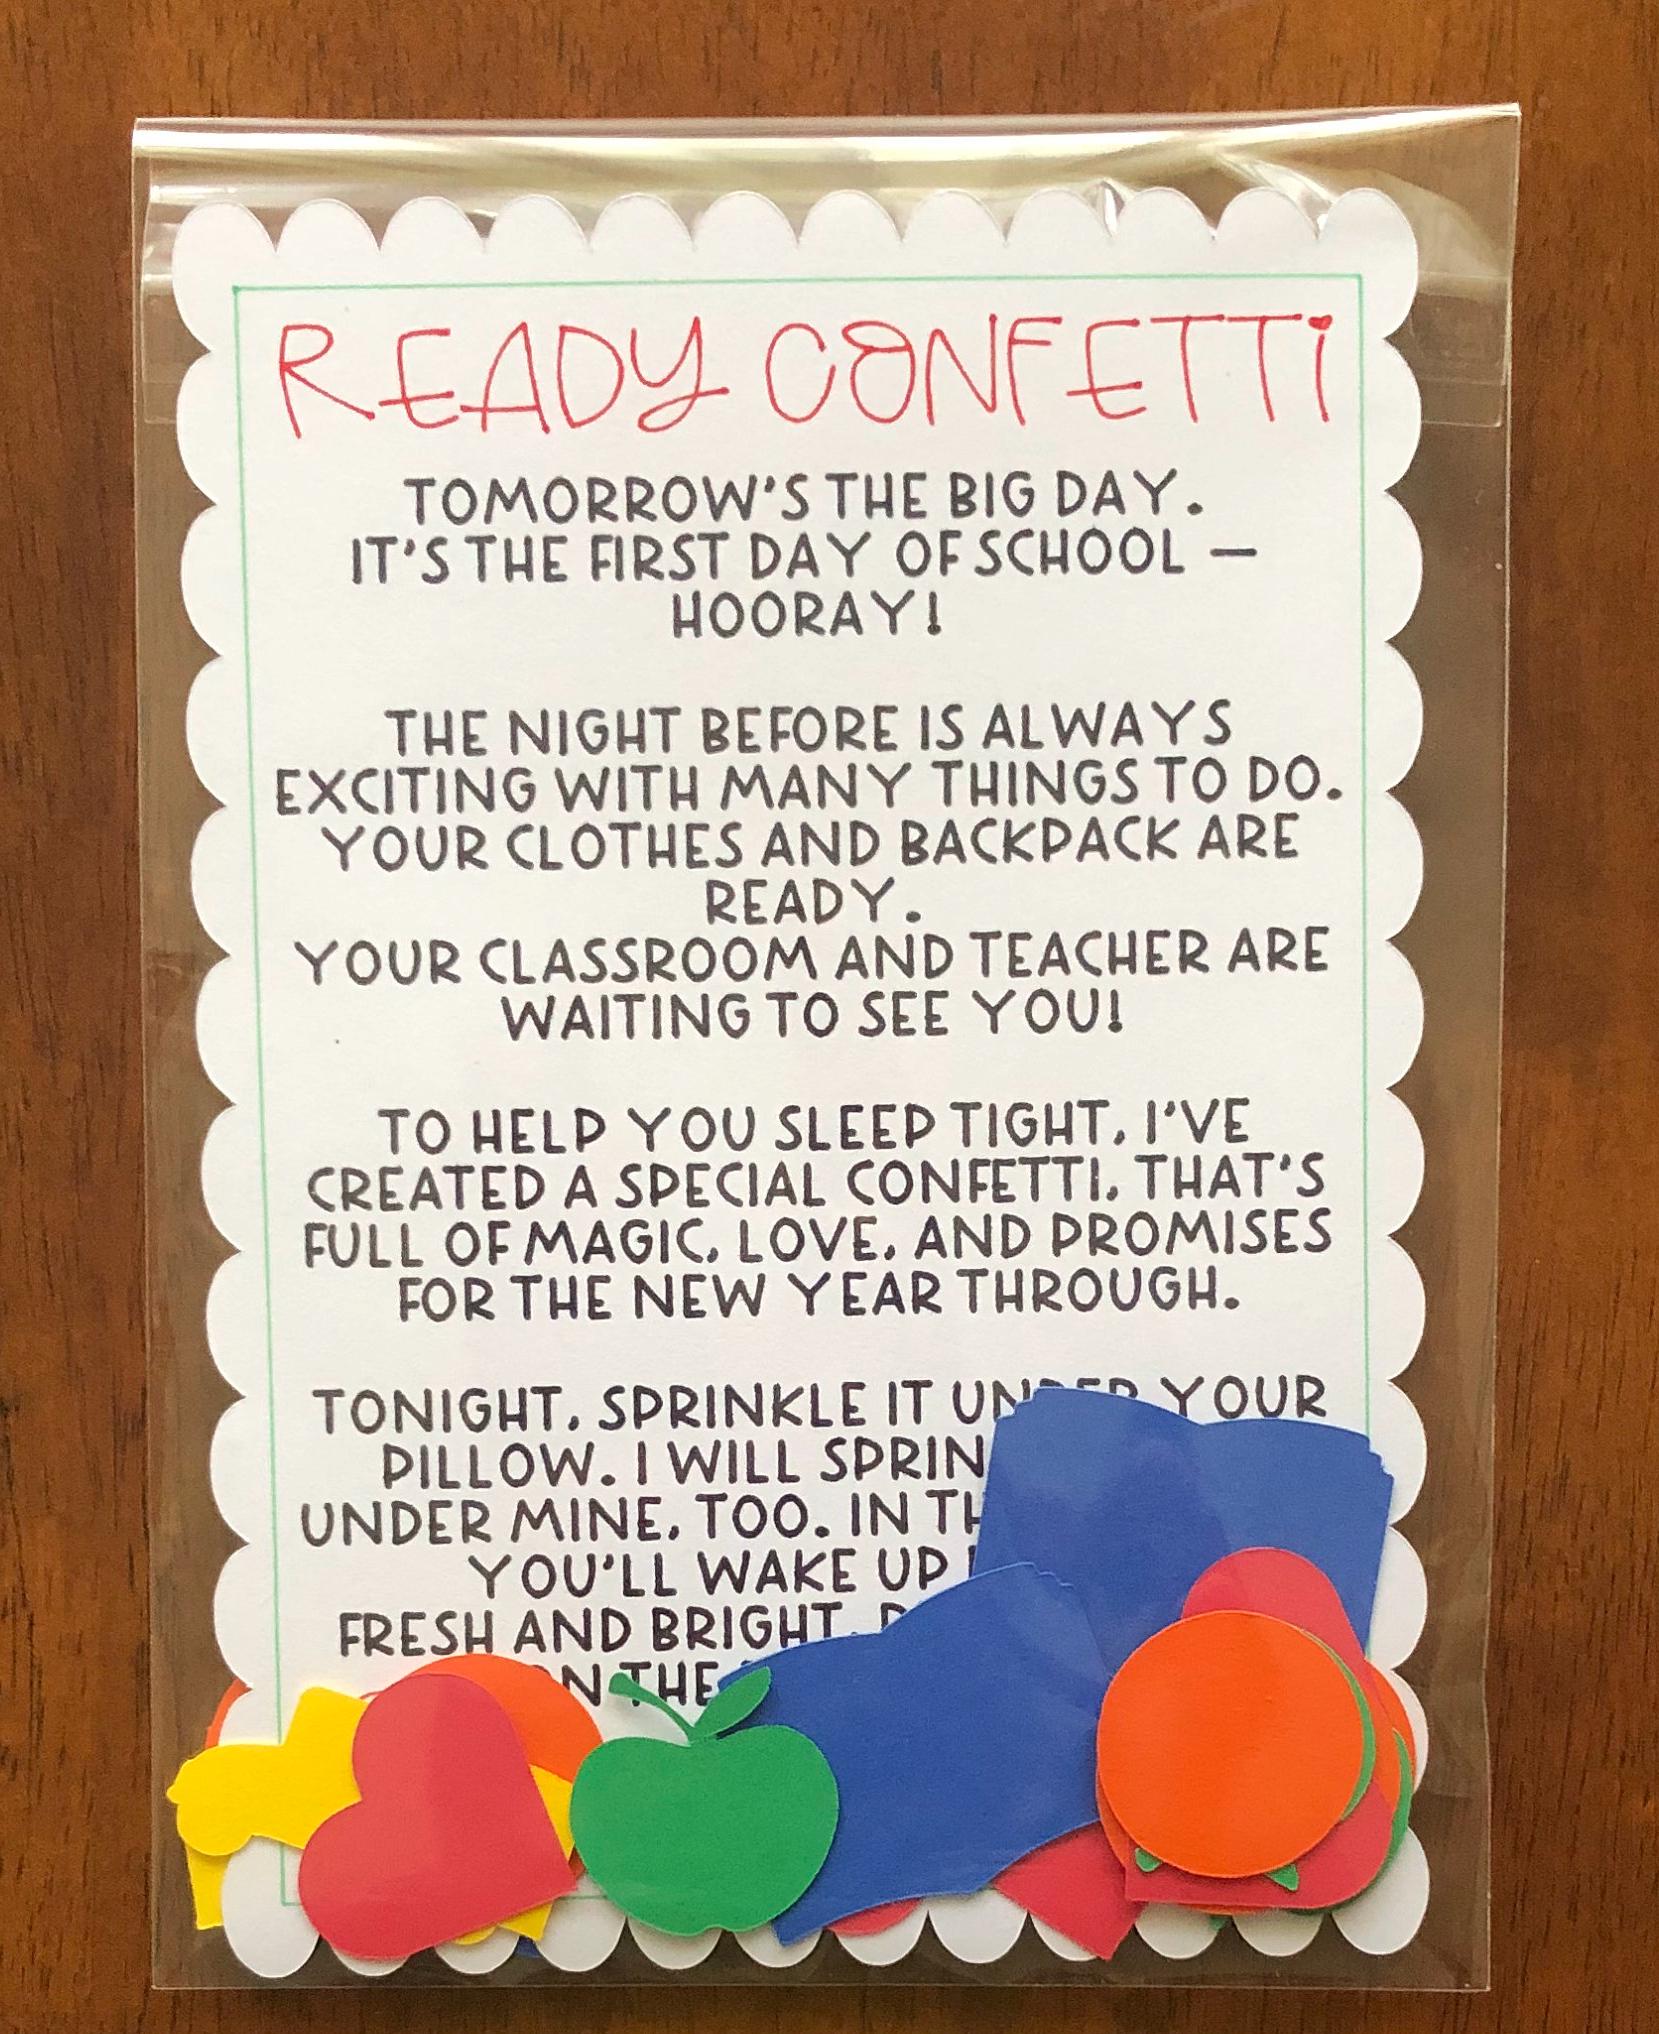 READY CONFETTI
TOMORROW'S THE BIG DAY.
IT'S THE FIRST DAY OF SCHOOL —
HOORAY!
THE NIGHT BEFORE IS ALWAYS
EXCITING WITH MANY THINGS TO DO.
YOUR CLOTHES AND BACKPACK ARE
READY.
YOUR CLASSROOM AND TEACHER ARE
WAITING TO SEE YOU!
TO HELP YOU SLEEP TIGHT, I'VE
CREATED A SPECIAL CONFETTI, THAT'S
FULL OF MAGIC, LOVE, AND PROMISES
FOR THE NEW YEAR THROUGH.
TONIGHT, SPRINKLE IT UNDER YOUR
PILLOW. I WILL SPRIN
UNDER MINE, TOO. IN TH
YOU'LL WAKE UP
FRESH AND BRIGHT,
THE